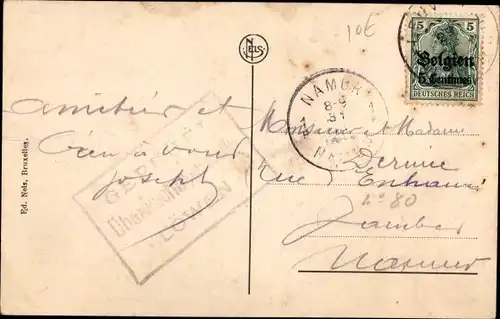 10€
NELS
5
5
Belgien
5 Centimes
DEUTSCHES REICH
NAMUR
8-9
31
NAMEN
Amitiés et
bien à vous
Joseph
GEPRÜFT
Überwachungs
LÖWEN
Monsieur et Madame
Derine
Rue
N° 80
Jambes
Namur
Ed. Nels, Bruxelles.